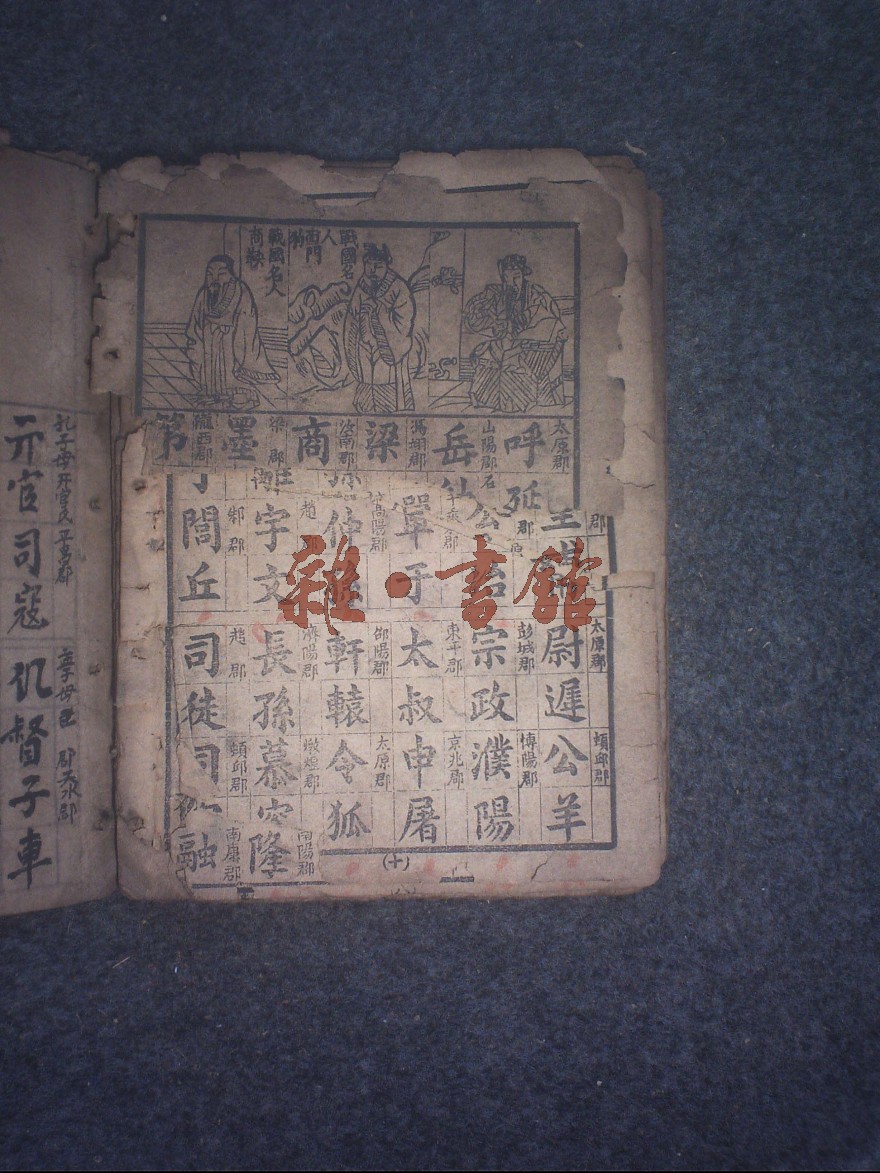 戰國名
人
西門
豹
戰國名人
商鞅
太原郡
呼延
山陽郡
岳
馮翊郡
梁
汝南郡
商
梁郡
墨
隴西郡
第
郡
太原郡
尉遲
頓邱郡
公羊
彭城郡
宗政
博陽郡
濮陽
東平郡
單于
太叔
京兆郡
申屠
高陽郡
仲孫
郃陽郡
軒轅
太原郡
令狐
趙
宇文
濟陽郡
長孫
燉煌郡
慕
南陽郡
隆
邾郡
閭丘
趙郡
司徒
頓邱郡
司
南康郡
融
(十)
孔子母亓官氏
亓官司寇
仉督子車
天水郡
雜·書館